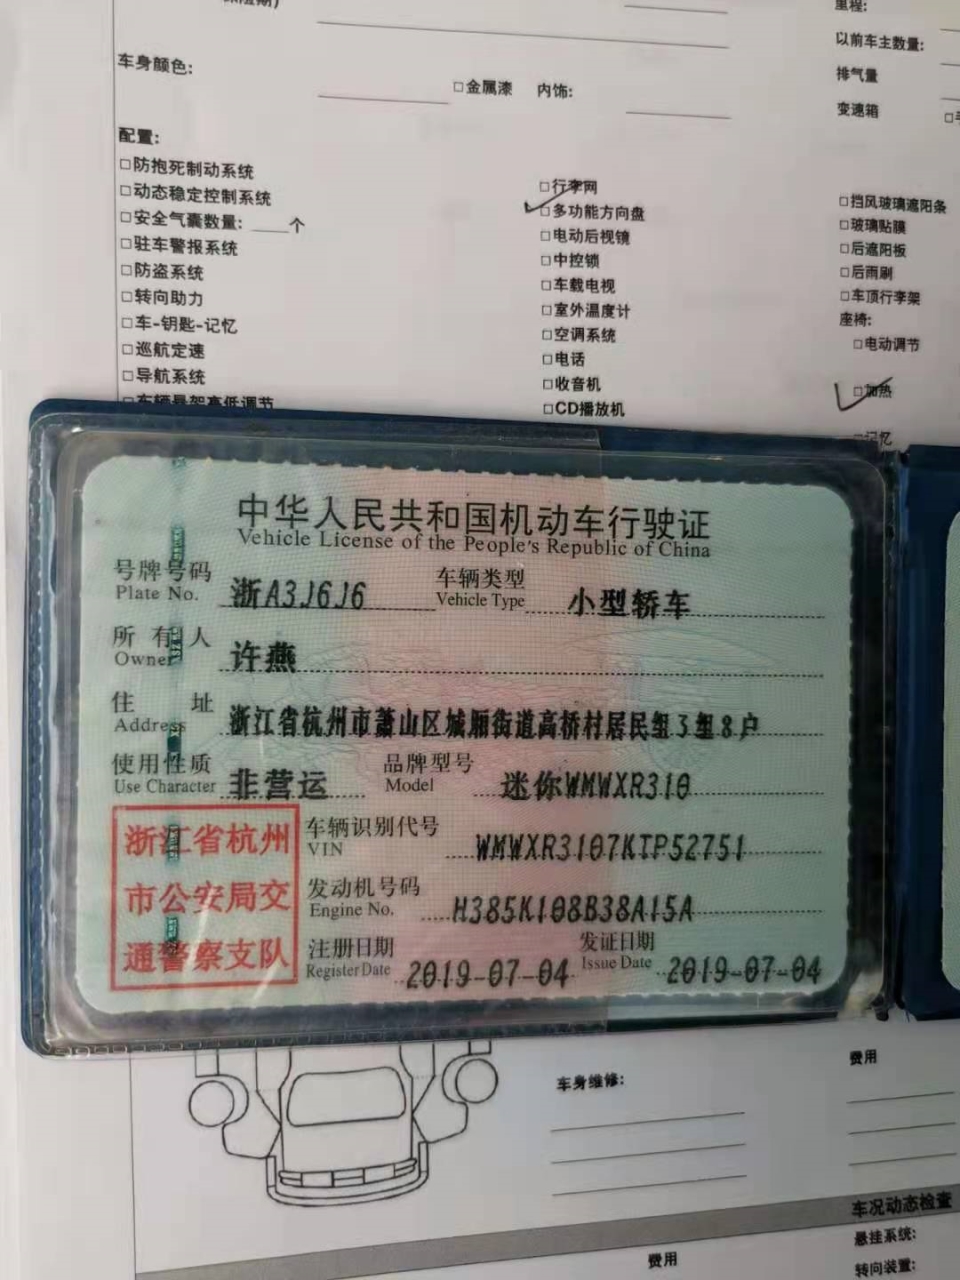 里程:
以前车主数量:
车身颜色:
□金属漆 内饰:
排气量
变速箱
配置:
□防抱死制动系统
□动态稳定控制系统
□安全气囊数量: ____个
□驻车警报系统
□防盗系统
□转向助力
□车-钥匙-记忆
□巡航定速
□导航系统
□车辆悬架高低调节
□行李网
□多功能方向盘
□电动后视镜
□中控锁
□车载电视
□室外温度计
□空调系统
□电话
□收音机
□CD播放机
□挡风玻璃遮阳条
□玻璃贴膜
□后遮阳板
□后雨刷
□车顶行李架
座椅:
□电动调节
□加热
□记忆
中华人民共和国机动车行驶证
Vehicle License of the People's Republic of China
号牌号码 浙A3J6J6 车辆类型 小型轿车
Plate No. Vehicle Type
所有人 许燕
Owner
住址 浙江省杭州市萧山区城厢街道高桥村居民组3组8户
Address
使用性质 非营运 品牌型号 迷你WMWXR310
Use Character Model
浙江省杭州
市公安局交
通警察支队
车辆识别代号 WMWXR3107KTP52751
VIN
发动机号码 H385K108B38A15A
Engine No.
注册日期 2019-07-04 发证日期 2019-07-04
Register Date Issue Date
车身维修:
费用
车况动态检查
悬挂系统:
费用
转向装置: